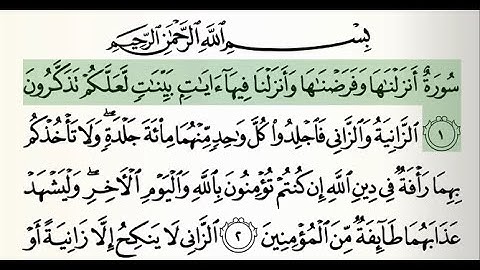 بِسْمِ اللَّهِ الرَّحْمَٰنِ الرَّحِيمِ
سُورَةٌ أَنزَلْنَٰهَا وَفَرَضْنَٰهَا وَأَنزَلْنَا فِيهَآ ءَايَٰتٍۭ بَيِّنَٰتٍ لَّعَلَّكُمْ تَذَكَّرُونَ
١ ٱلزَّانِيَةُ وَٱلزَّانِى فَٱجْلِدُوا۟ كُلَّ وَٰحِدٍ مِّنْهُمَا مِا۟ئَةَ جَلْدَةٍ ۖ وَلَا تَأْخُذْكُم
بِهِمَا رَأْفَةٌ فِى دِينِ ٱللَّهِ إِن كُنتُمْ تُؤْمِنُونَ بِٱللَّهِ وَٱلْيَوْمِ ٱلْءَاخِرِ ۖ وَلْيَشْهَدْ
عَذَابَهُمَا طَآئِفَةٌ مِّنَ ٱلْمُؤْمِنِينَ ٢ ٱلزَّانِى لَا يَنكِحُ إِلَّا زَانِيَةً أَوْ